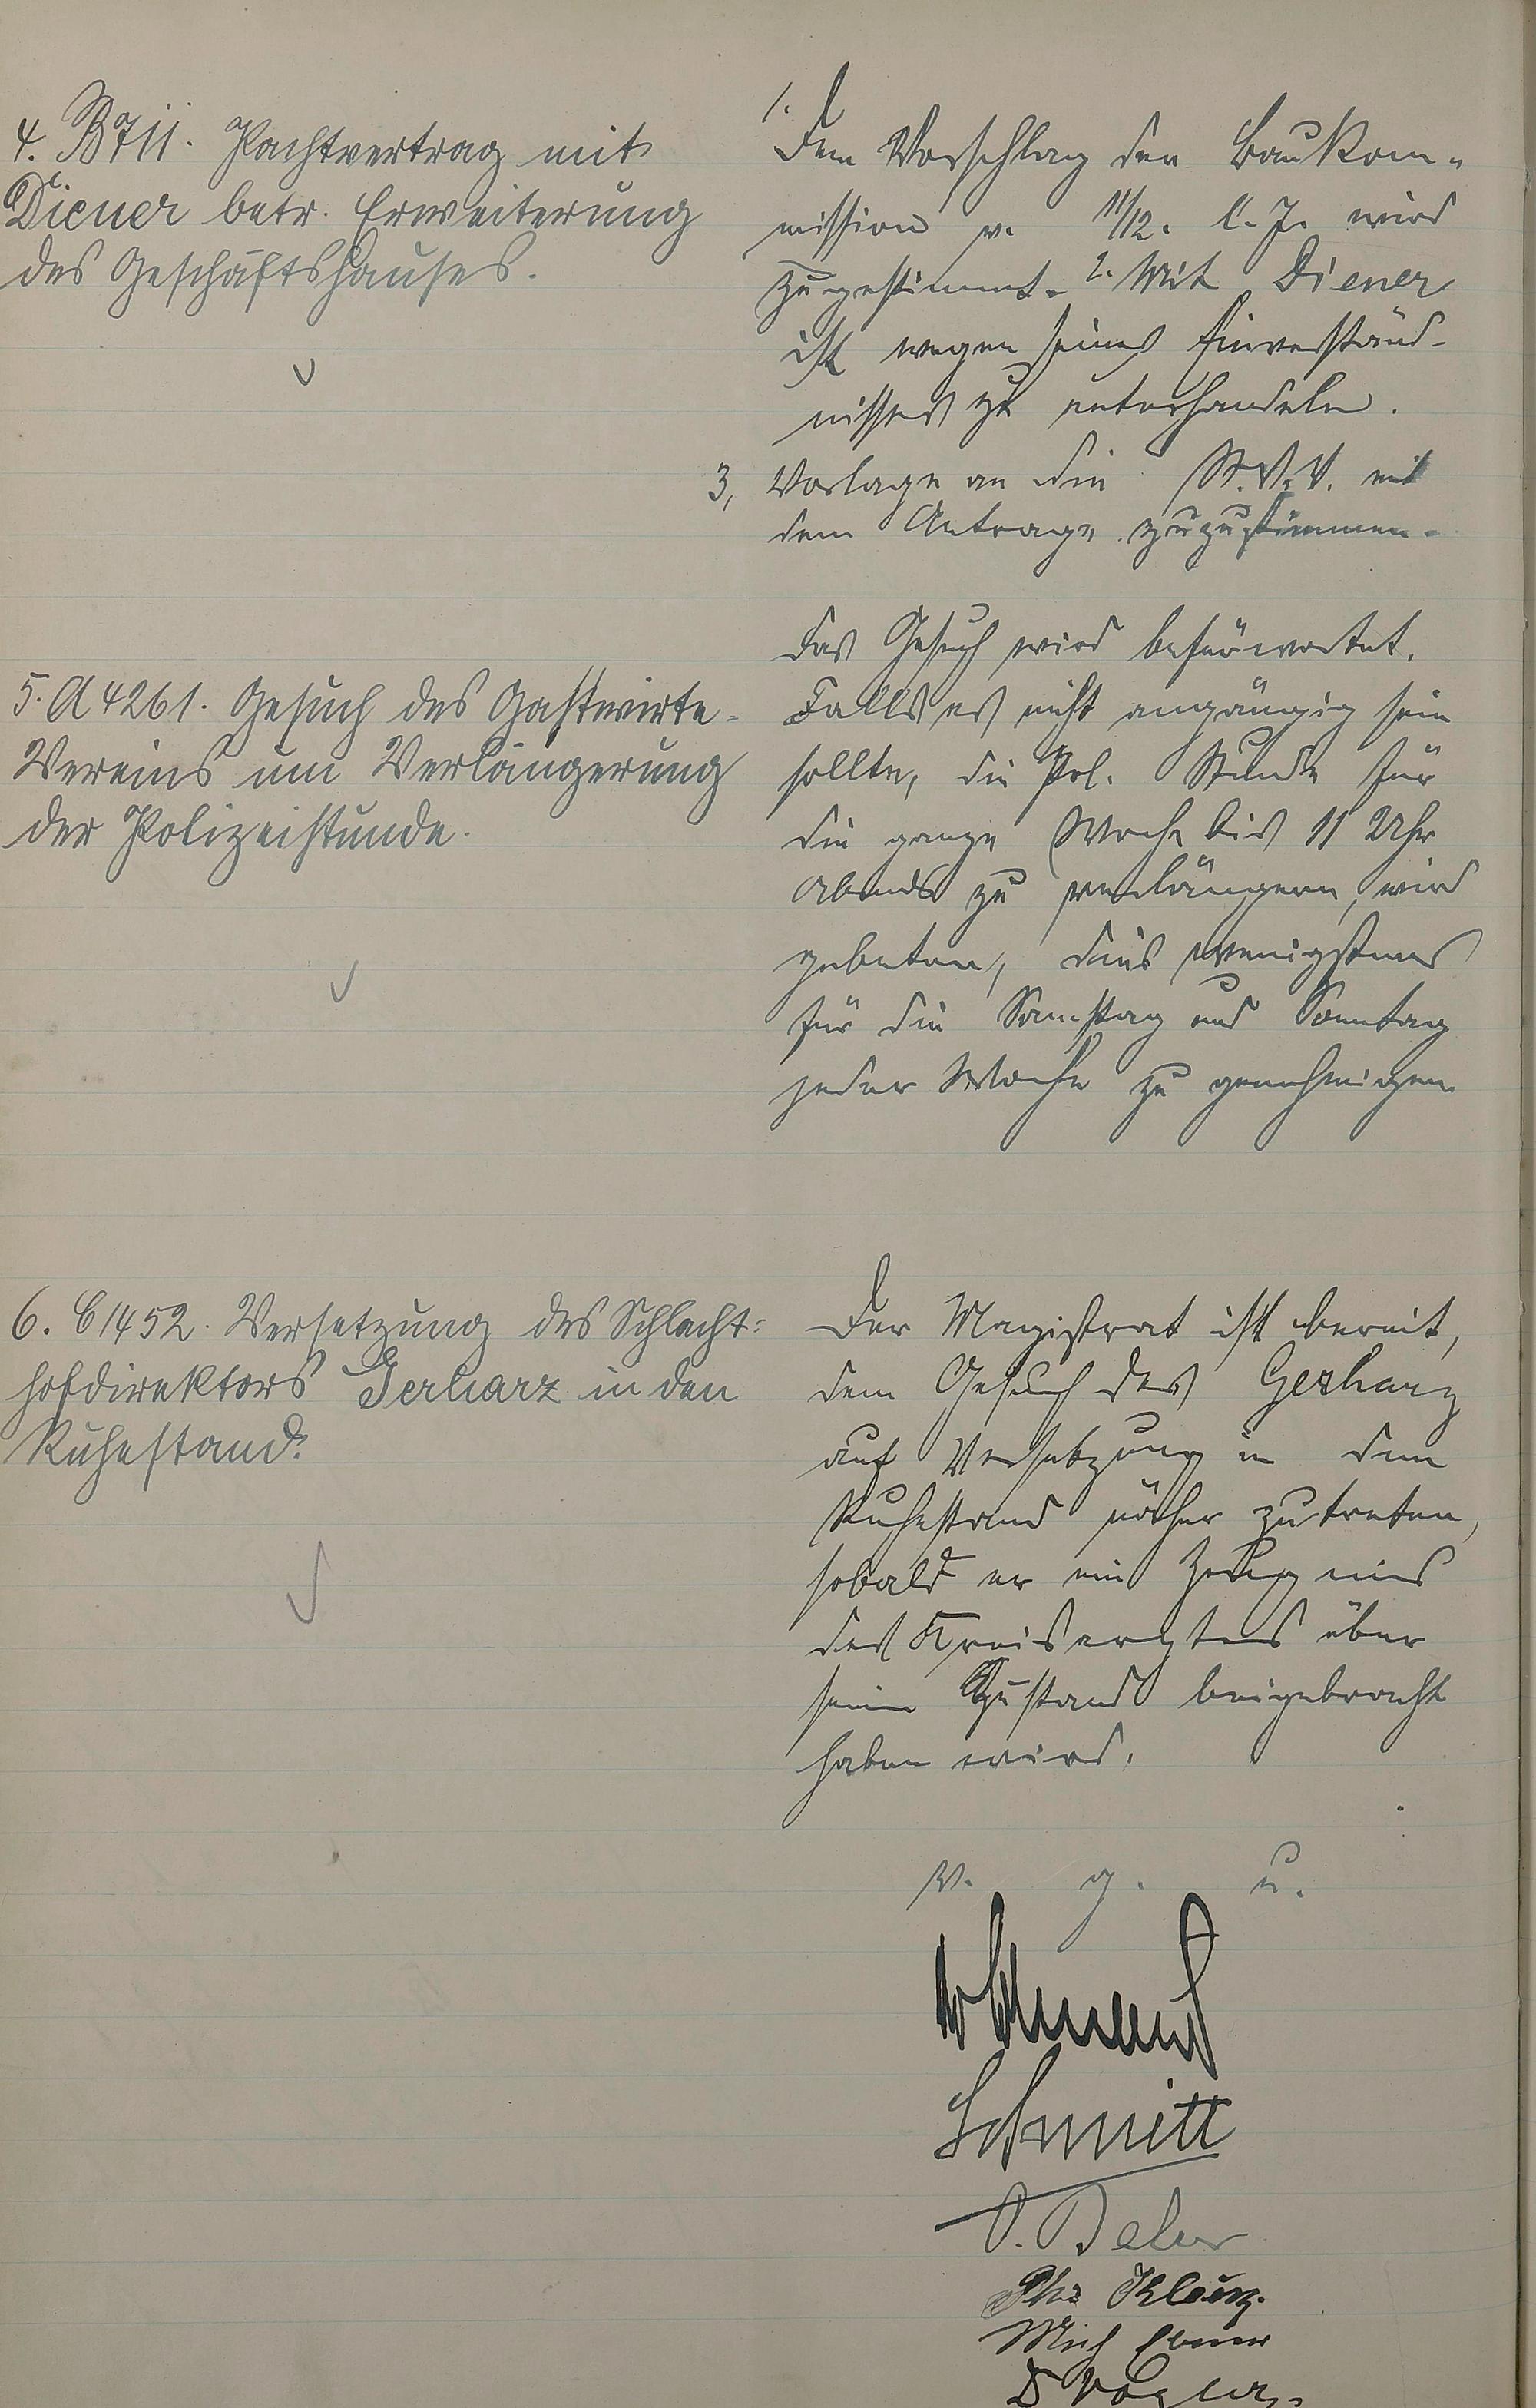 4. B 711. Pachtvertrag mit
Diener betr. Erweiterung
des Geschäftshauses.
1. Dem Vorschlag der Baukom-
mission v. 11/12. l. J. wird
zugestimmt. 2. Mit Diener
ist wegen seines Einverständ-
nisses zu unterhandeln.
3, Vorlage an die St.V.V. mit
dem Antrage zuzustimmen.
5. A 4261. Gesuch des Gastwirte-
Vereins um Verlängerung
der Polizeistunde.
Das Gesuch wird befürwortet.
Falls es nicht angängig sein
sollte, die Pol. Stunde für
die ganze Woche bis 11 Uhr
abends zu verlängern, wird
gebeten, dies wenigstens
für die Samstag und Sonntag
jeder Woche zu genehmigen
6. C 1452. Versetzung des Schlacht-
hofdirektors Gerharz in den
Ruhestand.
Der Magistrat ist bereit,
dem Gesuch des Gerharz
auf Versetzung in den
Ruhestand näher zu treten,
sobald er ein Zeugnis
des Kreisarztes über
seinen Zustand beigebracht
haben wird.
v. g. u.
Schmitt